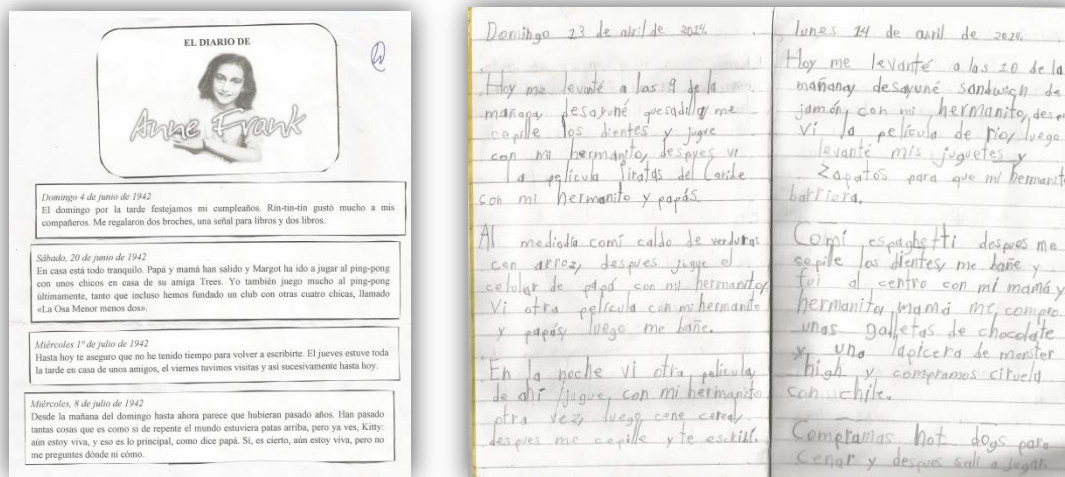 EL DIARIO DE
Anne Frank
Domingo 4 de junio de 1942
El domingo por la tarde festejamos mi cumpleaños. Rin-tin-tin gustó mucho a mis
compañeros. Me regalaron dos broches, una señal para libros y dos libros.
Sábado, 20 de junio de 1942
En casa está todo tranquilo. Papá y mamá han salido y Margot ha ido a jugar al ping-pong
con unos chicos en casa de su amiga Trees. Yo también juego mucho al ping-pong
últimamente, tanto que incluso hemos fundado un club con otras cuatro chicas, llamado
«La Osa Menor menos dos».
Miércoles 1º de julio de 1942
Hasta hoy te aseguro que no he tenido tiempo para volver a escribirte. El jueves estuve toda
la tarde en casa de unos amigos, el viernes tuvimos visitas y así sucesivamente hasta hoy.
Miércoles, 8 de julio de 1942
Desde la mañana del domingo hasta ahora parece que hubieran pasado años. Han pasado
tantas cosas que es como si de repente el mundo estuviera patas arriba, pero ya ves, Kitty:
aún estoy viva, y eso es lo principal, como dice papá. Sí, es cierto, aún estoy viva, pero no
me preguntes dónde ni cómo.
Domingo 13 de abril de 2014.
Hoy me levanté a las 9 de la
mañana, desayuné quesadilla, me
cepille los dientes y jugue
con mi hermanito, despues vi
la película Piratas del Caribe
con mi hermanito y papás.
Al mediodía comí caldo de verduras
con arroz, despues jugue el
celular de papá con mi hermanito,
vi otra película con mi hermanito
y papás, luego me bañe.
En la noche vi otra pelicula,
de ahí jugue, con mi hermanito
otra vez, luego cene cereal,
despues me cepille y te escribí.
lunes 14 de abril de 2014.
Hoy me levanté a las 10 de la
mañana, desayuné sandwich de
jamón, con mi hermanito,
vi la película de Rio, luego
levanté mis juguetes y
zapatos para que mi hermanito
barriera.
Comí espaghetti despues me
cepille los dientes, me bañe y
fui al centro con mi mamá y
hermanito, mamá me compro
unas galletas de chocolate
y una lapicera de monster
high y compramos ciruela
con chile.
Compramos hot dogs para
cenar y despues salí a jugar.